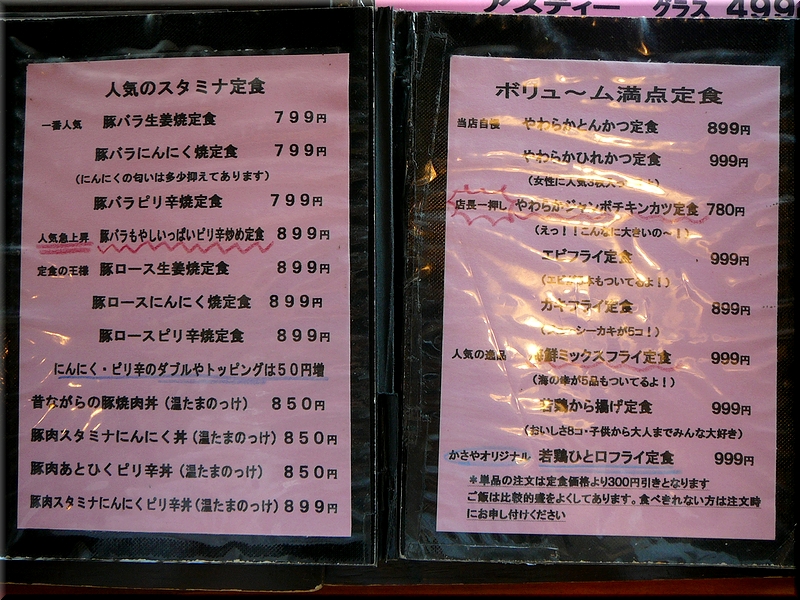 アスティー グラス 499
人気のスタミナ定食
一番人気 豚バラ生姜焼定食 799円
豚バラにんにく焼定食 799円
（にんにくの匂いは多少抑えてあります）
豚バラピリ辛焼定食 799円
人気急上昇 豚バラもやしいっぱいピリ辛炒め定食 899円
定食の王様 豚ロース生姜焼定食 899円
豚ロースにんにく焼定食 899円
豚ロースピリ辛焼定食 899円
にんにく・ピリ辛のダブルやトッピングは50円増
昔ながらの豚焼肉丼（温たまのっけ） 850円
豚肉スタミナにんにく丼（温たまのっけ） 850円
豚肉あとひくピリ辛丼（温たまのっけ） 850円
豚肉スタミナにんにくピリ辛丼（温たまのっけ） 899円
ボリュ～ム満点定食
当店自慢 やわらかとんかつ定食 899円
やわらかひれかつ定食 999円
（女性に人気
店長一押し やわらかジャンボチキンカツ定食 780円
（えっ！！こんなに大きいの～！）
エビフライ定食 999円
もついてるよ！）
カキフライ定食 899円
シーカキが5コ！）
人気の逸品 海鮮ミックスフライ定食 999円
（海の幸が5品もついてるよ！）
若鶏から揚げ定食 999円
（おいしさ8コ・子供から大人までみんな大好き）
かさやオリジナル 若鶏ひと口フライ定食 999円
＊単品の注文は定食価格より300円引きとなります
ご飯は比較的盛をよくしてあります。食べきれない方は注文時
にお申し付けください